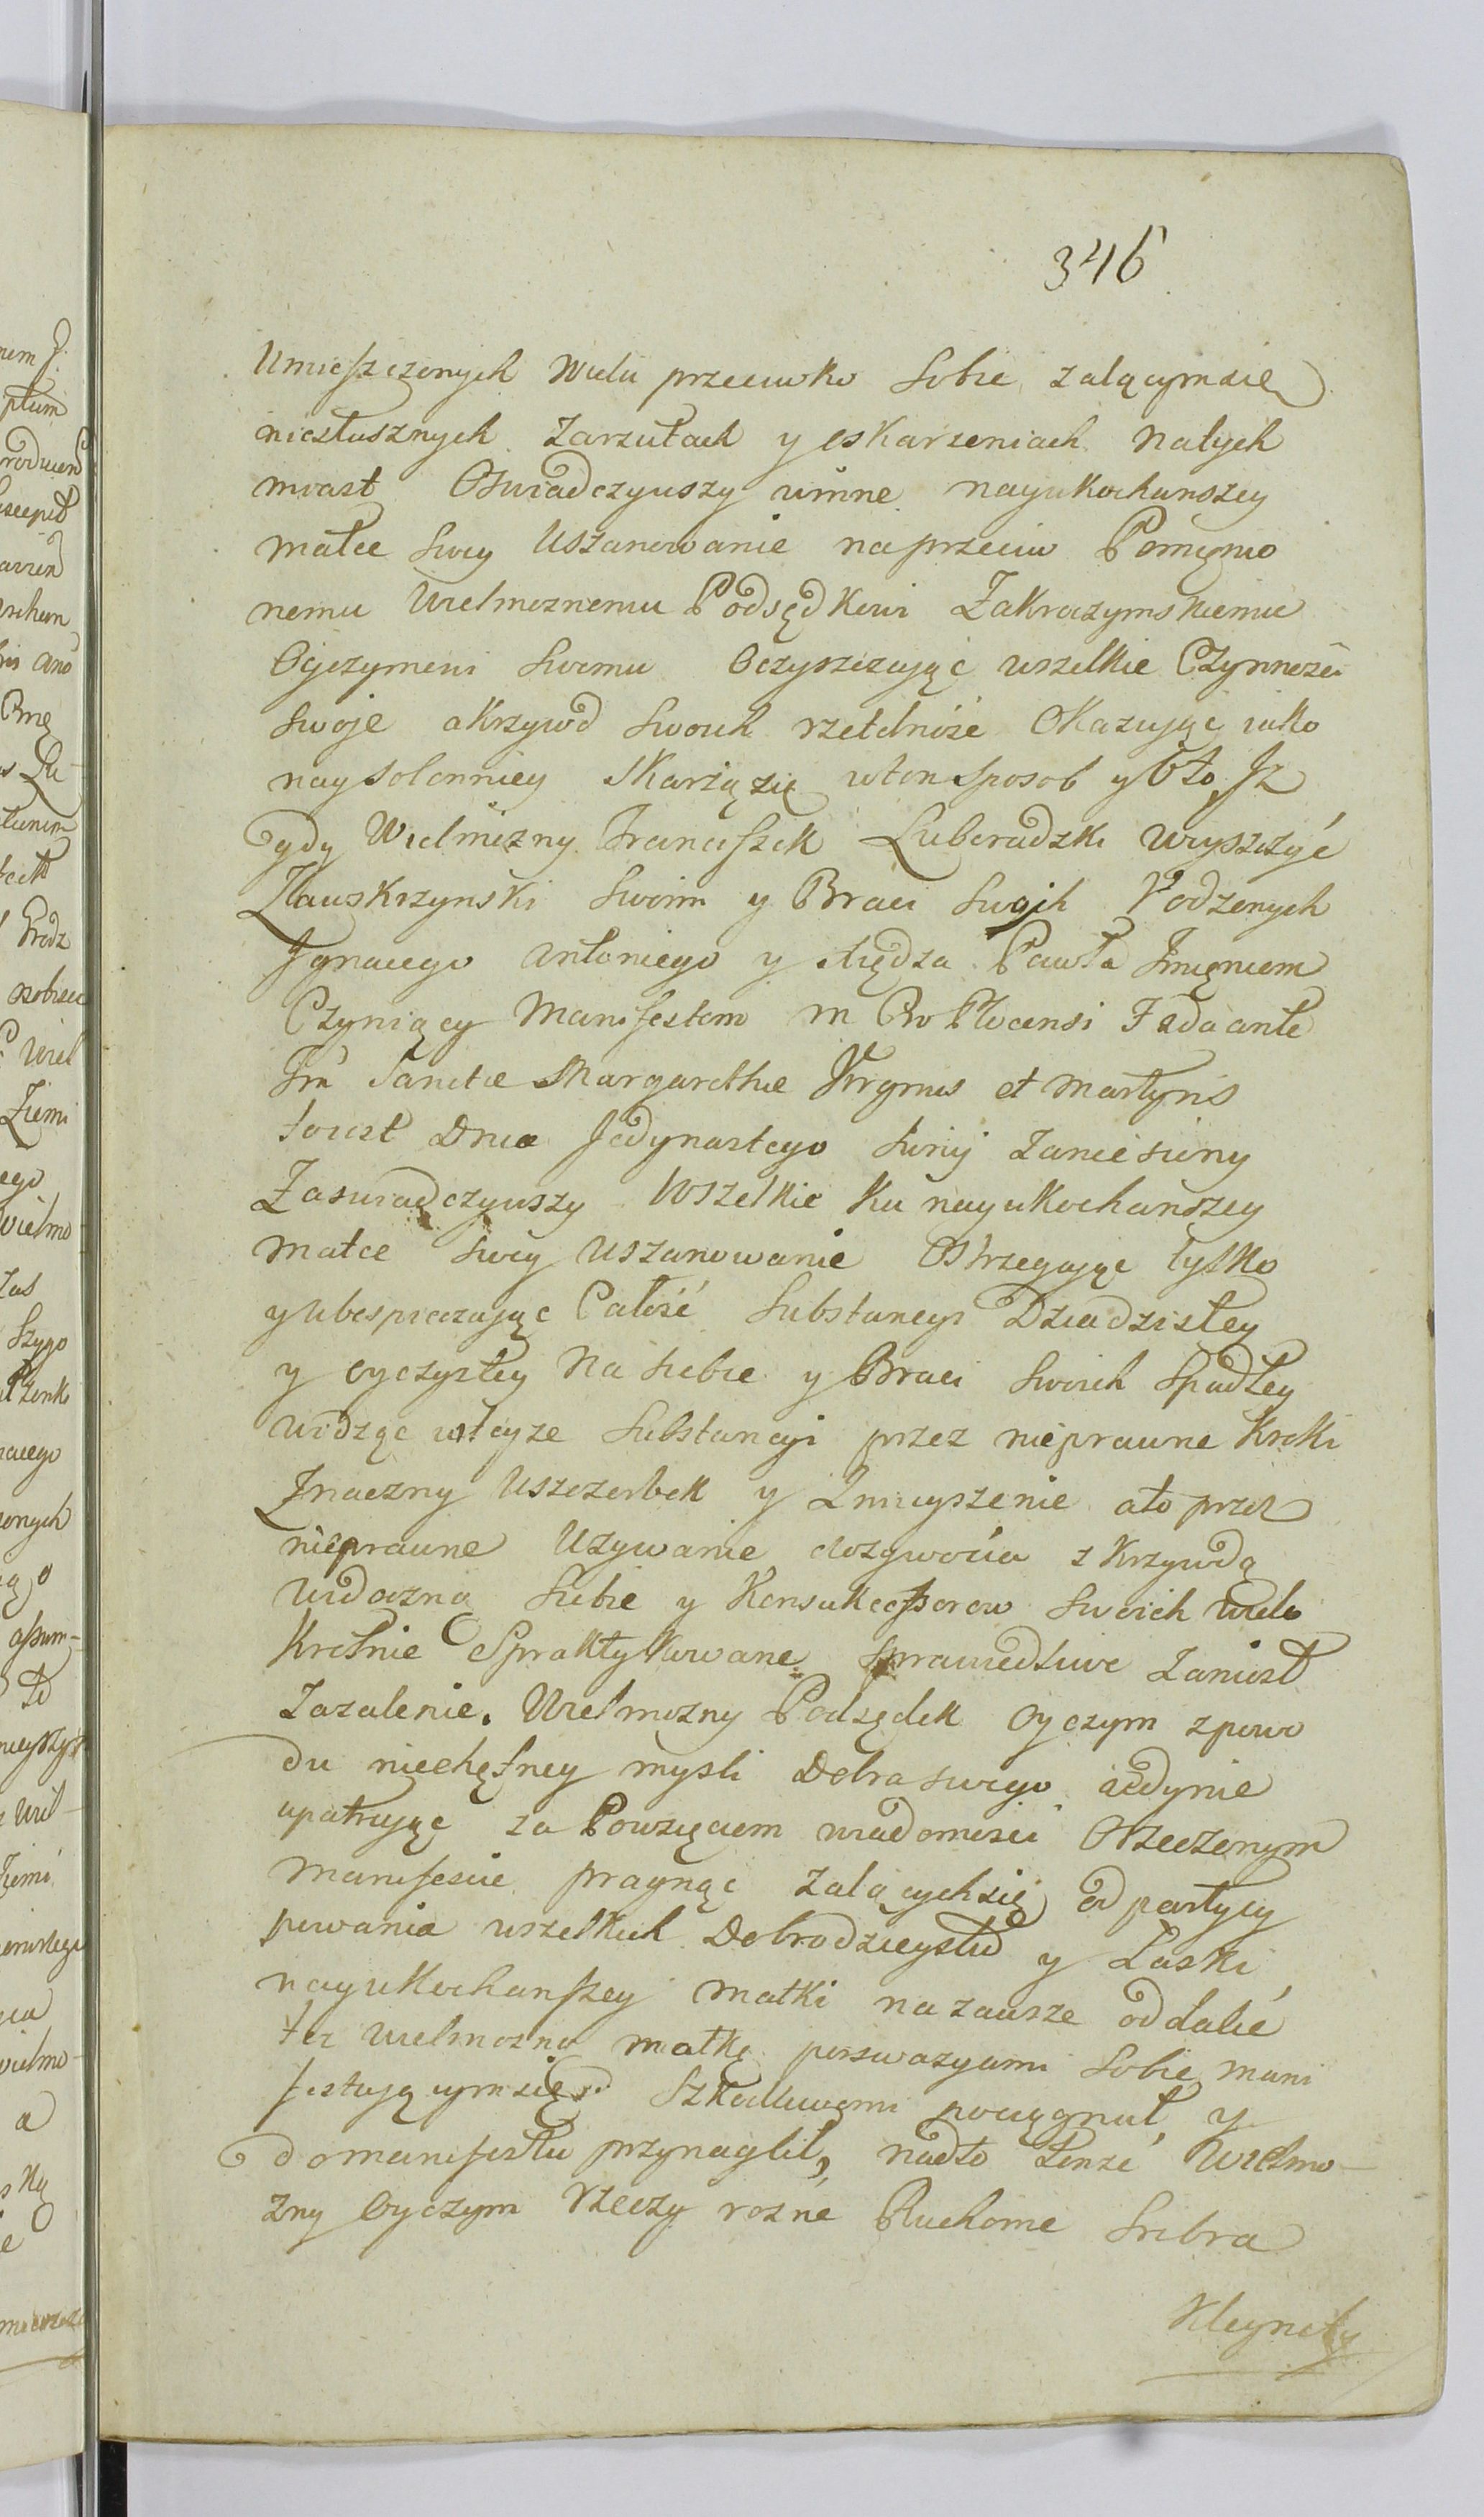 346
Umieszczonych wielu przeciwko Sobie zalącymsię
niesłusznych Zarzutach y oskarzeniach natych
miast Oswiadczywszy winne nayukochanszey
matce swey Uszanowanie naprzeciw Pomięnio
nemu Wielmoznemu Podsędkowi Zakroczymskiemu
Oyczymowi swemu Oczyszczając wszelkie Czynnośći
swoje a Krzywd swoich rzetelność Okazując iako
naysolenniey Skarżą się w ten Sposob y Oto Jz
gdy Wielmożny Franciszek Luberadzki Woyszczyć
Zławskrzynski Swoim y Braci Swojch Rodzonych
Jgnacego Antoniego y xiędza Pawła Jmięniem
Czyniący Manifestem in Cro Plocensi Fda ante
Fm Sanctæ Margarethæ Virginis et Martyris
toiest Dnia Jedynastego Junij Zaniesiony
Zaswiadczywszy Wszelkie Ku nayukochanszey
Matce swey Uszanowanie Ostrzegając tylko
y ubespieczając Całość Substancyi Dziadzistey
y oyczystey Na siebie y Braci Swoich Spadłey
widząc w teyze Substancyi przez nieprawne Kroki
Znaczny Uszczerbek y Zmnyszenie a to przez
nieprawne Uzywanie dozywocia z Krzywdą
widoczną Siebie y Konsukcessorow Swoich Wielo
Krotnie Spraktykowane Sprawiedliwe Zaniosł
Zazalenie. Wielmozny Podsędek Oyczym z powo
du niechętney mysli Dobra swego iedynie
upatrując za Powzięciem wiadomości O rzeczonym
Manifescie pragnąc Zalącychsię od partycy
powania wszelkich Dobrodzieystw y Łaski
nayukochanszey Matki na zawsze oddalić
tęz wielmozną matkę perswazyami Sobie mani
festującymsię Szkodliwemi pociągnuł y
do manifestu przynaglił, nadto tenze Wielmo-
zny Oyczym rzeczy rozne Ruchome Srebra
Kleynoty